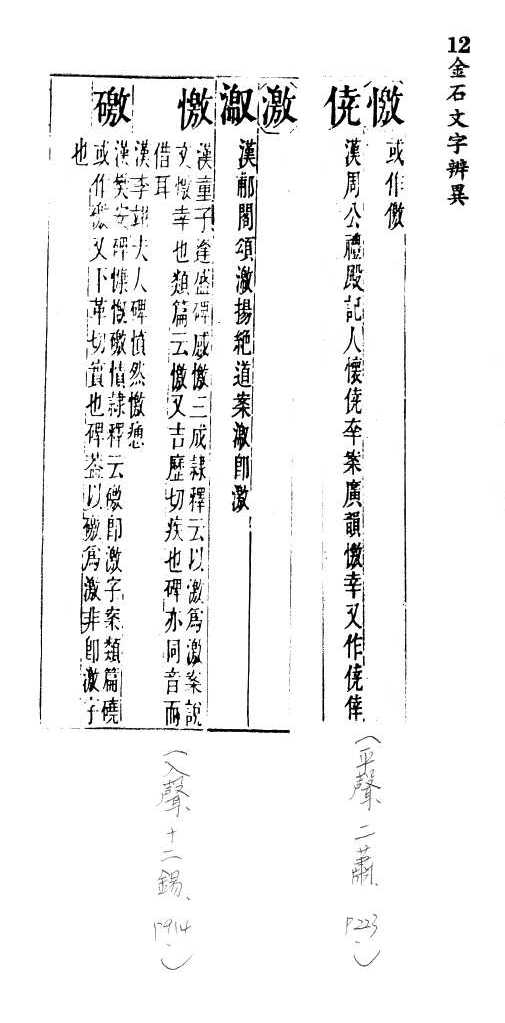 12金石文字辨異
憿
或作儌
侥
漢周公禮殿記人懷侥幸案廣韻憿幸又作侥倖
激
漢郙閣頌激揚絶道案㴾即激
憿
漢童子逢盛碑感憿三成隷釋云以激爲激案說
文憿幸也類篇云憿又吉歷切疾也碑亦同音而
借耳
漢李翊夫人碑憤然憿憊
礉
漢樊安碑慷慨礉憤隷釋云礉即激字案類篇磽
或作礉又下革切實也碑葢以礉爲激非即激字
也
(平聲、二蕭、P223.)
(入聲、十二錫、P914.)